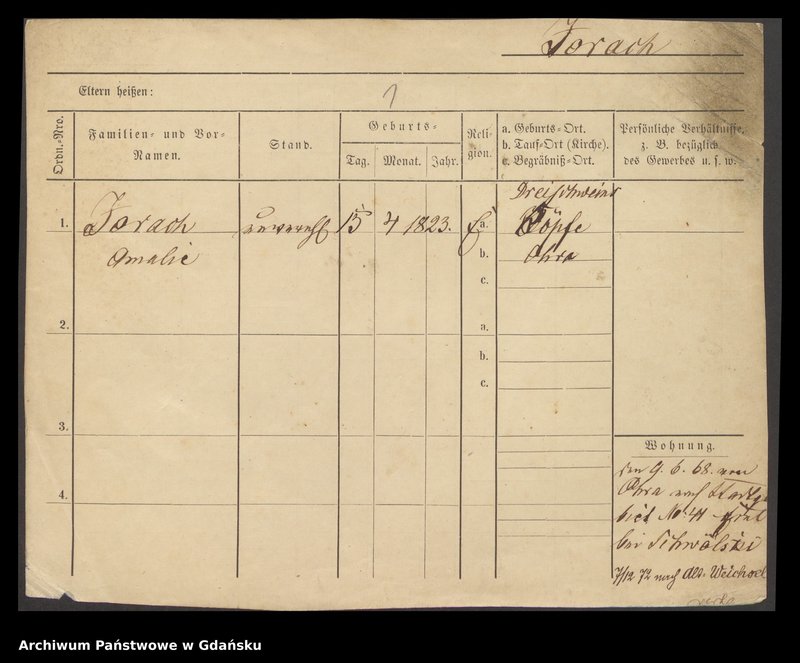 Jorach
Eltern heißen:
Ordn.-Nro.
Familien- und Vor-
Namen.
Stand.
Geburts-
Tag. Monat. Jahr.
Reli-
gion.
a. Geburts-Ort.
b. Tauf-Ort (Kirche).
c. Begräbniß-Ort.
Persönliche Verhältnisse,
z. B. bezüglich
des Gewerbes u. s. w.
Dreischweins
1. Jorach unverehl 15 4 1823. a. Köpfe
Amalie b. Ohra
c.
2. a.
b.
c.
3.
4.
Wohnung.
den 9. 6. 68. von
Ohra nach Stadtge
biet No. 41
bei
7/12 72 nach Alt. Weichsel
Archiwum Państwowe w Gdańsku